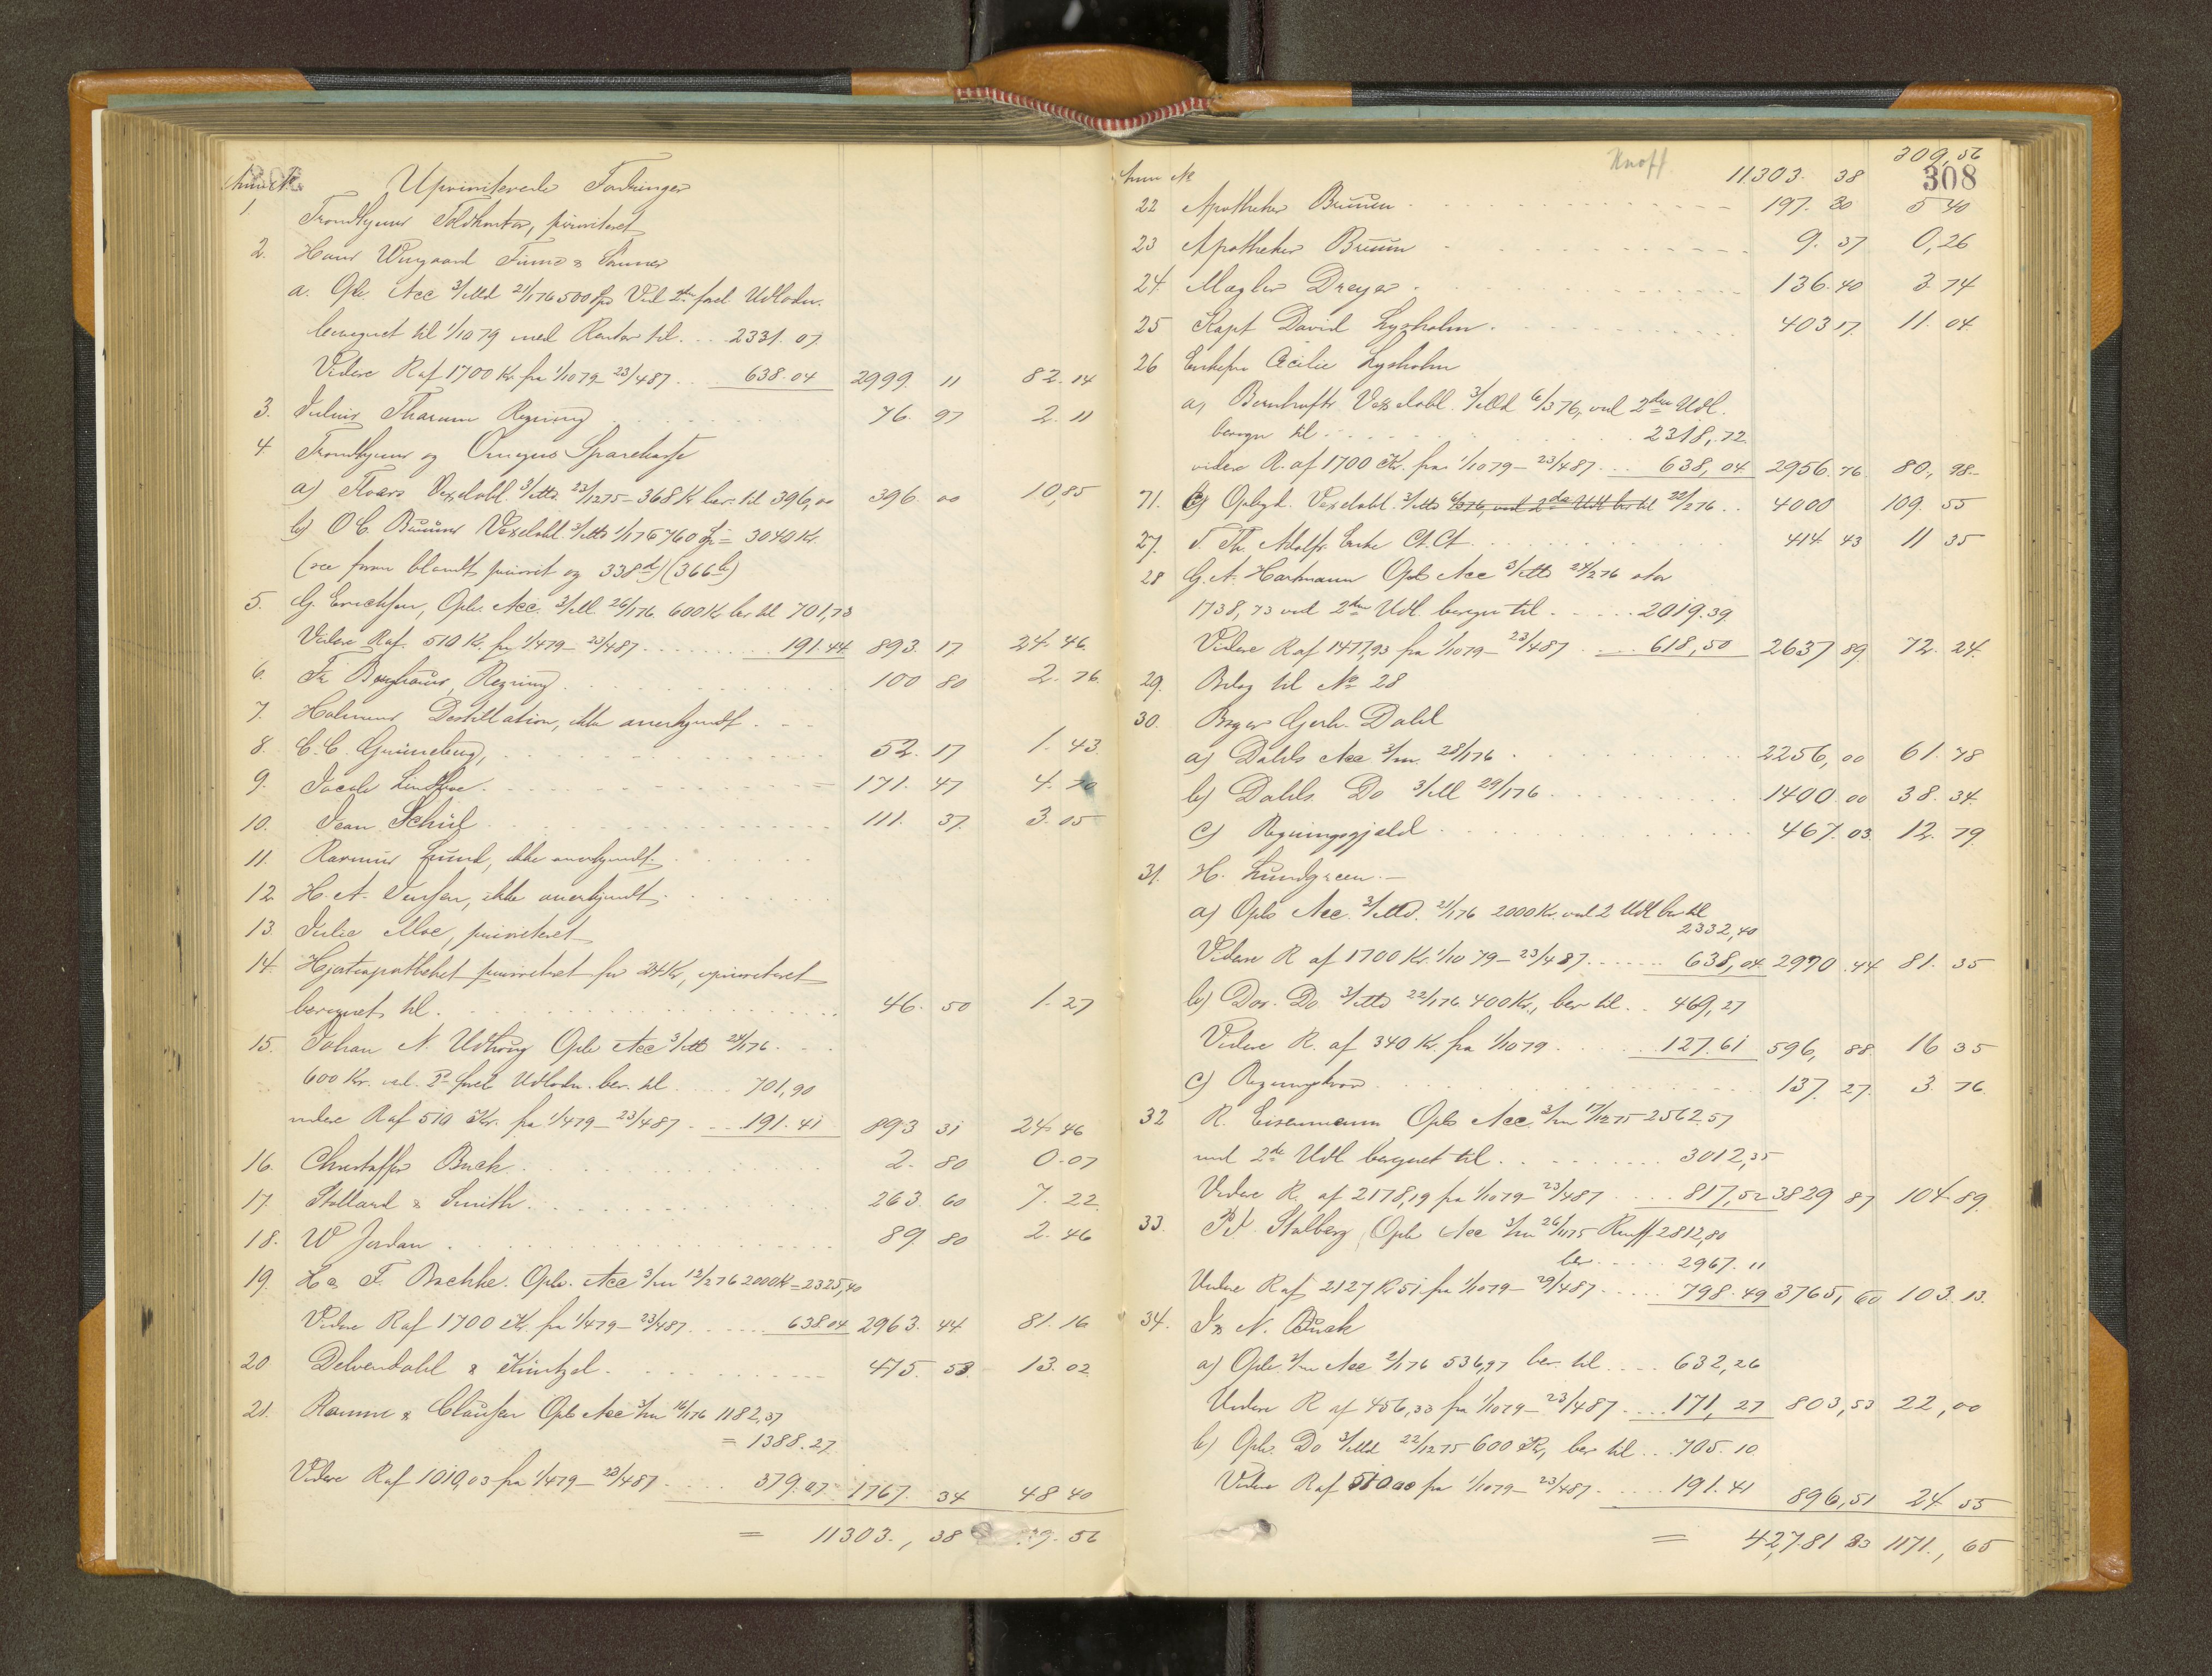 Anm No Upriviterede Fordringer
1. Trondhjems Toldkontor, priviteret
2. Hans Wingaard Finne & Sønner
a. Opb. Acc 3/Md 21/1 76 500 Spd Ved 2den forel. Udlodn.
beregnet til 1/10 79 med Renter til ... 2331. 07
Videre R af 1700 Kr. fra 1/10 79 - 23/4 87 ... 638.04 2999. 11 82.14
3. Julius Tharum Regning 76. 97 2.11
4 Trondhjems og Omegns Sparekasse
a) Floers Vexelobl. 3/Mds. 23/12 75 - 368 Kr. ber. til 396,00 396. 00 10,85
b) O C. Bruuns Vexelobl. 3/Mds 1/1 76 760 Sp = 3040 Kr.
(see foran blandt priorit og 338d) (366b)
5. G. Erichsen, Opb. Acc. 3/Md. 26/1 76. 600 Kr ber til 701,73
Videre R af. 510 Kr. fra 1/4 79 - 23/4 87 191.44 893. 17 24.46
6. Fr. Regning 100 80 2.76
7. Holmens Destillation, ikke anerkjendt
8. C. C. Grünneberg, 52. 17 1.43
9. Jacob = 171. 47 4.70
10. Jean Schül 111. 37. 3.05
11. Rasmus Lund, ikke anerkjendt
12 H. A. Jensen, ikke anerkjendt
13. Julie Moe, priviteret
14. Hjorteapotheket priviteret for 24 Kr., upriviteret
beregnet til 46. 50 1.27
15. Johan N. Udhoug Opb Acc 3/Md 24/1 76
600 Kr. ved. 2den forel. Udlodn. ber. til 701,90
videre R af 510 Kr. fra 1/4 79 - 23/4 87 191.41 893 31 24 46
16. Christoffer Buck 2. 80 0.07
17. Stallard & Smith 263. 60 7. 22
18. W Jordan 89. 80 2.46
19. H & F. Opb. Acc 3/m 12/2 76 2000 Kr = 2325,40
Videre R af 1700 Kr. fra 1/4 79 - 23/4 87 638.04 2963. 44 81.16
20 Delvendahl & Küntzel 475. 53 13.02
21. Ramm & Clausen Opb Acc 3/m 16/1 76 1182,37
= 1388.27
Videre R af 1010,03 fra 1/4 79 - 23/4 87 379.07 1767. 34 48 40
= 11303., 38 56
Knoff
309,56
308
Anm No 11303. 38
22 Apotheker Bruun 197. 30 5 40
23 Apotheker Bruun 9. 37 0,26
24 Mægler Dreyer 136.40 3.74
25 Kapt David Lysholm 403 17. 11. 04
26 Enkefru Cecilie Lysholm
a) Vexelobl. 3/Md 6/3 76, ved 2den Udl.
beregn til 2318,72
videre R. af 1700 Kr. fra 1/10 79 - 23/4 87 638,04 2956. 76. 80,. 98
71. Vexelobl. 3/Mds 6/3 76, ved 2den Udl ber til 22/2 76 4000 109. 55
27. Adolfs Enke Ct. Ct 414 43 11 35
28 G. A. Hartmann Opb Acc 3/Mds 24/2 76 stor
1738,73 ved 2den Udl. beregn til 2019.39
Videre R af 1477,93 fra 1/10 79 - 23/4 87 618,50 2637 89. 72. 24.
29. Bilag til No 28
30. Bager Gerh. Dahl
a) Dahls Acc 3/m. 28/1 76 2256,00 61.78
b) Dahls. Do 3/Md 29/1 76 1400.00 38.34.
c) Regningsgjæld 467. 03 12. 79
31. H. Lundgreen. -
a) Opb Acc. 3/Md. 21/1 76 2000 Kr. ved 2 Udl ber til
2332,40
Videre R af 1700 Kr. 1/10 79 - 23/4 87 638,04 2970.44 81. 35
b) Dos. Do. 3/Mds 22/1 76 400 Kr., ber til 469,27
Videre R. af 340 Kr. fra 1/10 79 127.61 596, 88 16 35
c) Regningskrav 137. 27. 3. 76
32 R. Eisenmann Opb Acc. 3/m 17/12 75 2562.57
ved 2de Udl beregnet til 3012,35
Videre R. af 2178,19 fra 1/10 79 - 23/4 87 817,52 3829 87 104.89.
33. P. A. Stalberg Opb Acc 3/m 26/11 75 2812,80
ber 2967. 11
Videre R af 2127 Kr 51 fra 1/10 79 - 29/4 87 798.49 3765,60 103. 13.
34. J. N. Buck
a) Opb. 3/m Acc 2/1 76 536,97 ber. til 632,26
Videre R af 456,33 fra 1/10 79 - 23/4 87 171,27 803,53 22,00
b) Opb. Do 3/Md 22/12 75 600 Kr., ber til 705.10
Videre R af 510 00 fra 1/10 79 - 23/4 87 191.41 896,51 24 55
= 427.81 83 1171., 65